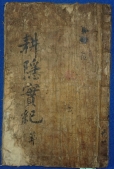 耕隱實紀